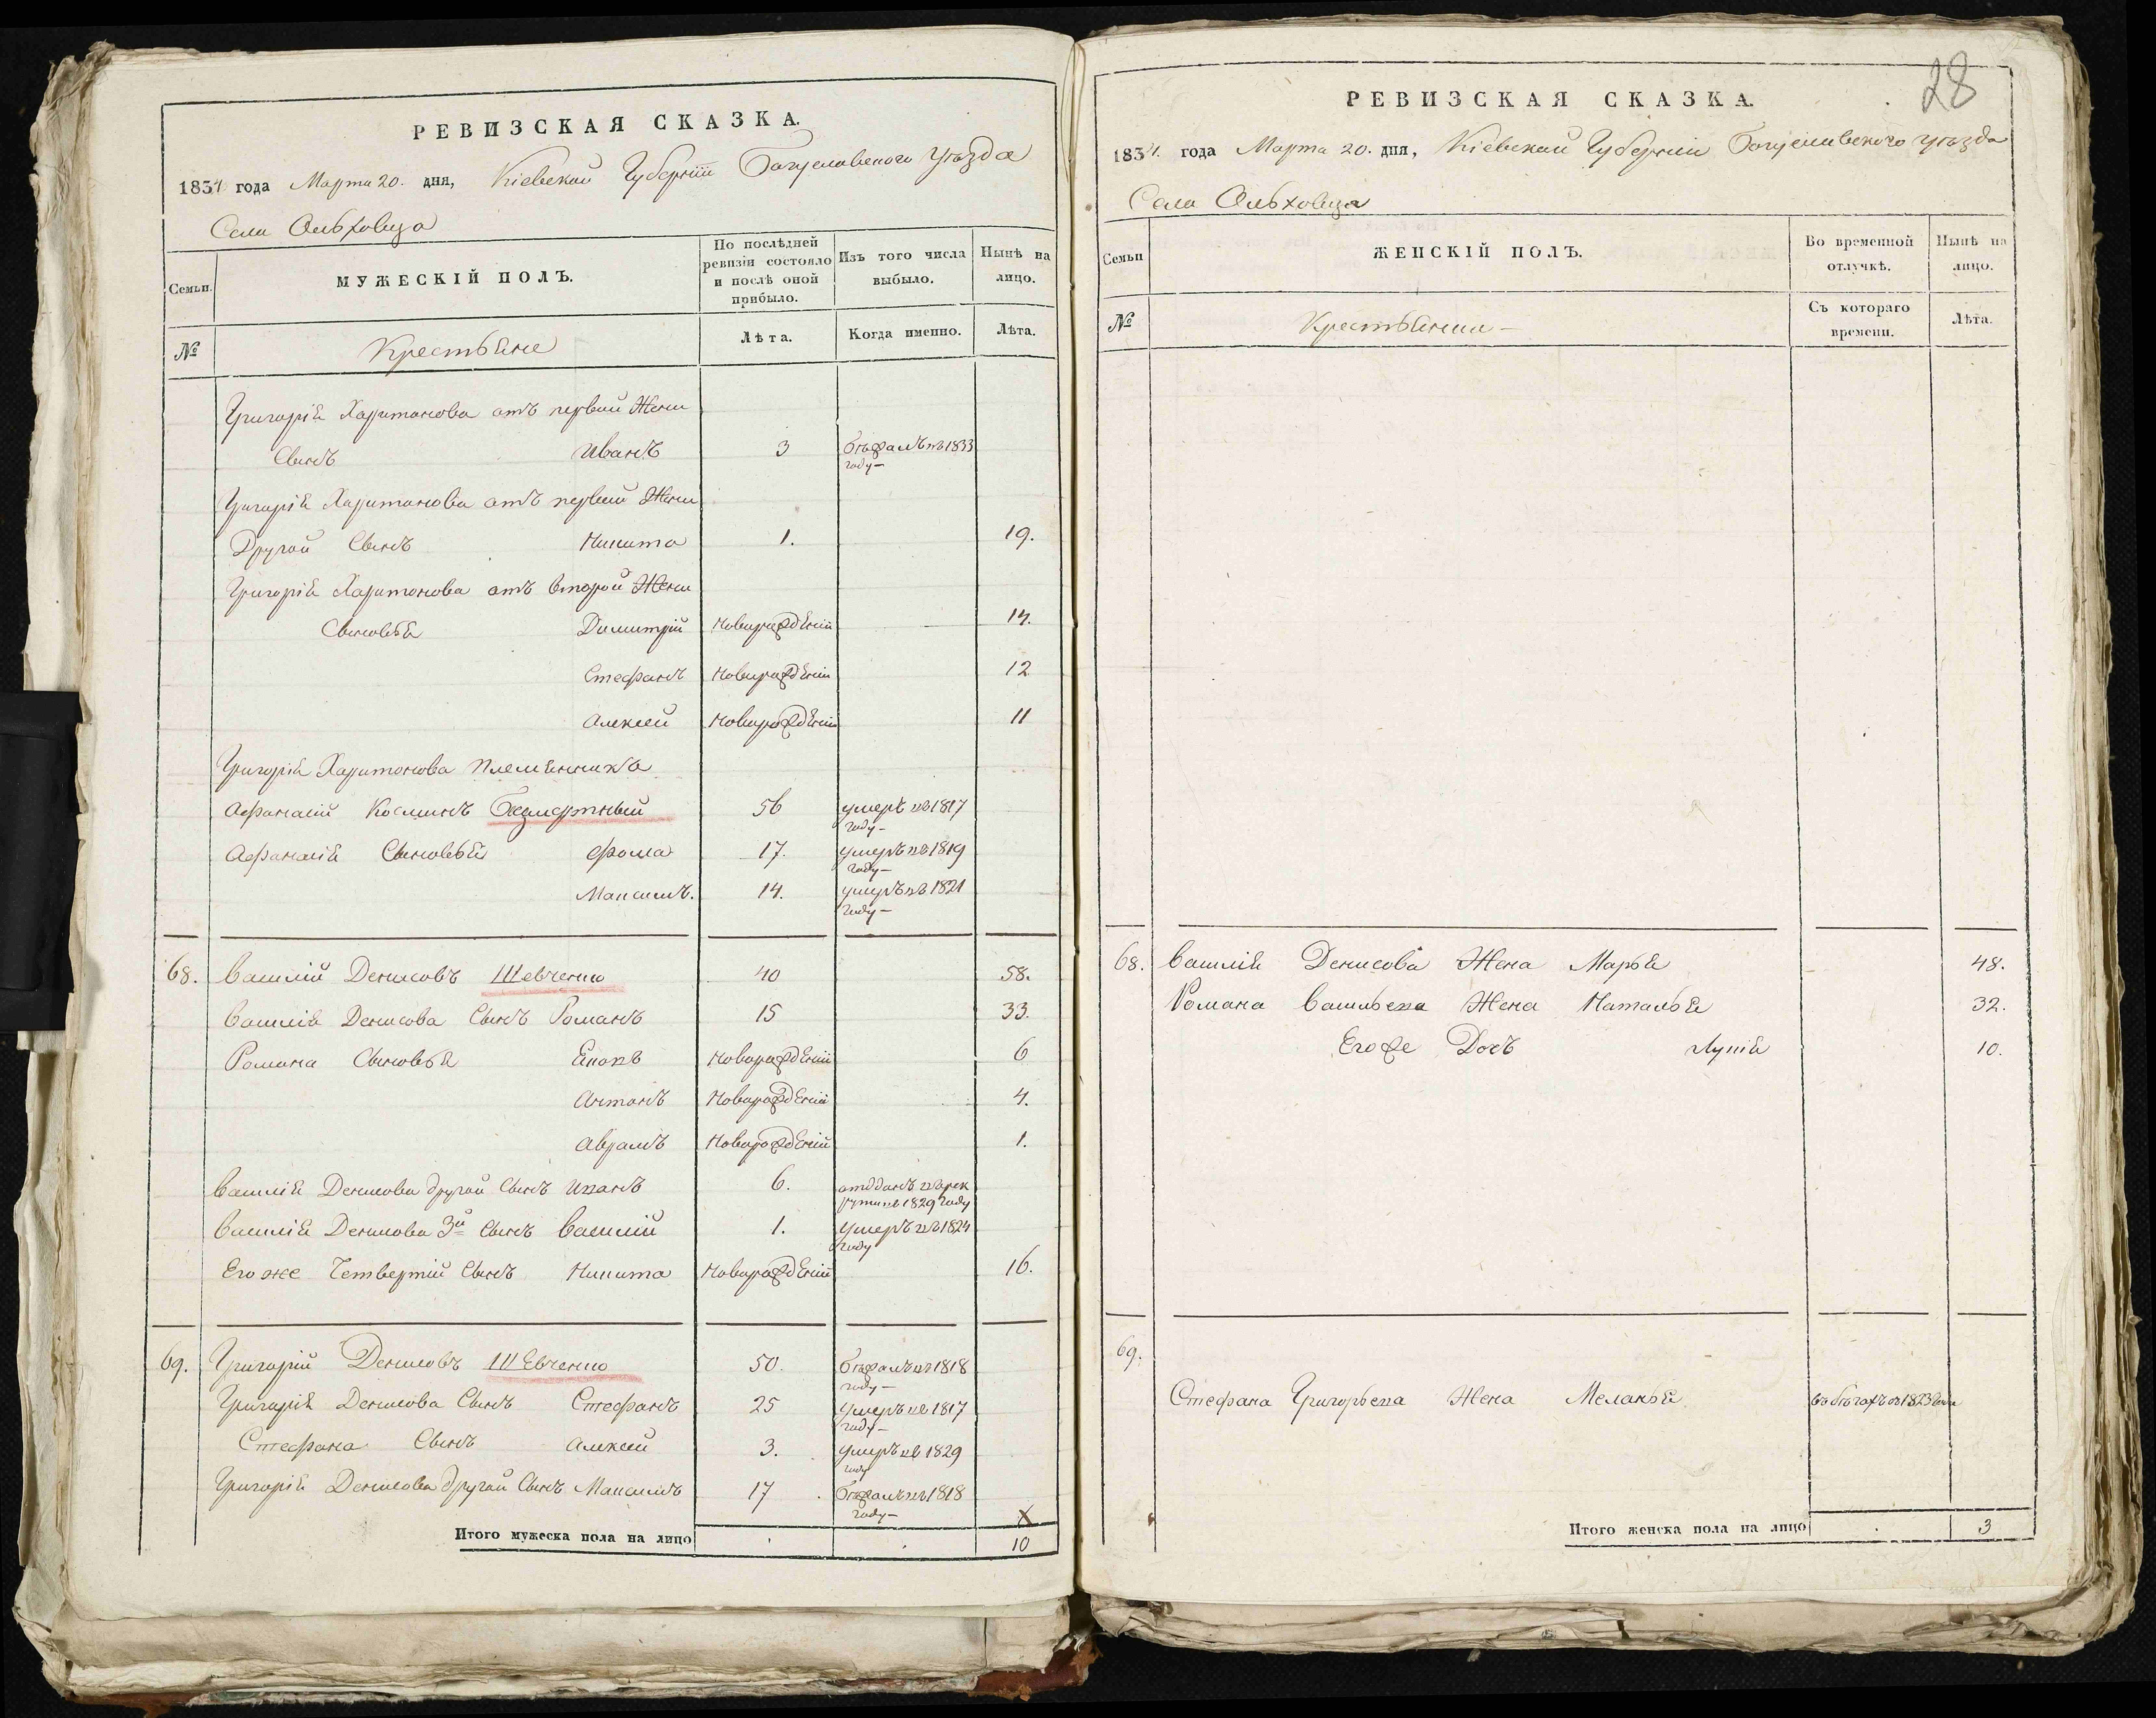 РЕВИЗСКАЯ СКАЗКА.
1834 года Марта 20. дня, Кіевской Губерніи Богуславского уѣзда
Села Ольховца
Семьи.
МУЖЕСКІЙ ПОЛЪ.
По послѣдней ревизіи состояло и послѣ оной прибыло.
Изъ того числа выбыло.
Нынѣ на лицо.
№
Крестьяне
Лѣта.
Когда именно.
Лѣта.
Григорія Харитонова отъ первой Жены
Сынъ Иванъ 3 бѣжалъ въ 1833
году —
Григорія Харитонова отъ первой Жены
Другой Сынъ Никита 1. 19.
Григорія Харитонова отъ второй Жены
Сыновья Димитрій Новорожденій 14.
Стефанъ Новорожденій 12
Алексей Новорожденій 11
Григорія Харитонова племянника
Афанасій Косминъ Безмертный 56 умеръ въ 1817
году —
Афанасія Сыновья Фома 17. умеръ въ 1819
году —
Максимъ. 14. умеръ въ 1821
году —
68. Василій Денисовъ Шевченко 40 58.
Василія Денисова Сынъ Романъ 15 33.
Романа Сыновья Яковъ Новорожденій 6
Антонъ Новорожденій 4.
Аврамъ Новорожденій 1.
Василія Денисова другой Сынъ Иванъ 6. отданъ въ рек
руты въ 1829 году
Василія Денисова 3й Сынъ Василий 1. умеръ въ 1824
году
Его же Четвертій Сынъ Никита Новорожденій 16.
69. Григорій Денисовъ Шевченко 50. бѣжалъ въ 1818
году —
Григорія Денисова Сынъ Стефанъ 25 умеръ въ 1817
году —
Стефана Сынъ Алексей 3. умеръ въ 1829
году
Григорія Денисова другой Сынъ Максимъ 17 бѣжалъ въ 1818
году —
Итого мужеска пола на лицо 10
28
РЕВИЗСКАЯ СКАЗКА.
1834. года Марта 20. дня, Кіевской Губерніи Богуславского уѣзда
Села Ольховца
Семьи
ЖЕНСКІЙ ПОЛЪ.
Во временной отлучкѣ.
Нынѣ на лицо.
№
Крестьянки —
Съ котораго времени.
Лѣта.
68. Василія Денисова Жена Марья 48.
Романа Васильева Жена Наталья 32.
Его же Дочь Лукія 10.
69.
Стефана Григорьева Жена Меланья въ бѣгахъ съ 1823 года
Итого женска пола на лицо 3